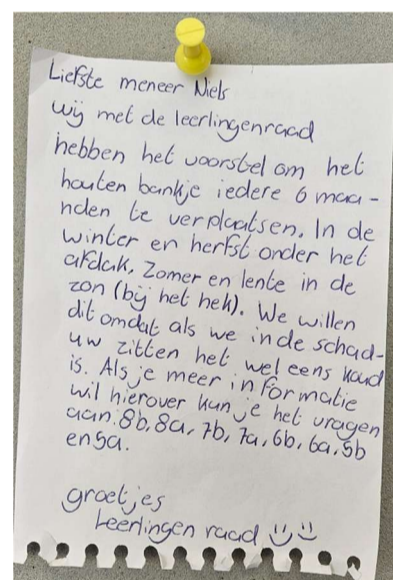 Liefste meneer Niels
wij met de leerlingenraad
hebben het voorstel om het
houten bankje iedere 6 maa-
nden te verplaatsen. In de
winter en herfst onder het
afdak. Zomer en lente in de
zon (bij het hek). We willen
dit omdat als we in de schad-
uw zitten het wel eens koud
is. Als je meer informatie
wil hierover kun je het vragen
aan: 8b, 8a, 7b, 7a, 6b, 6a, 5b
en 5a.
groetjes
Leerlingen raad